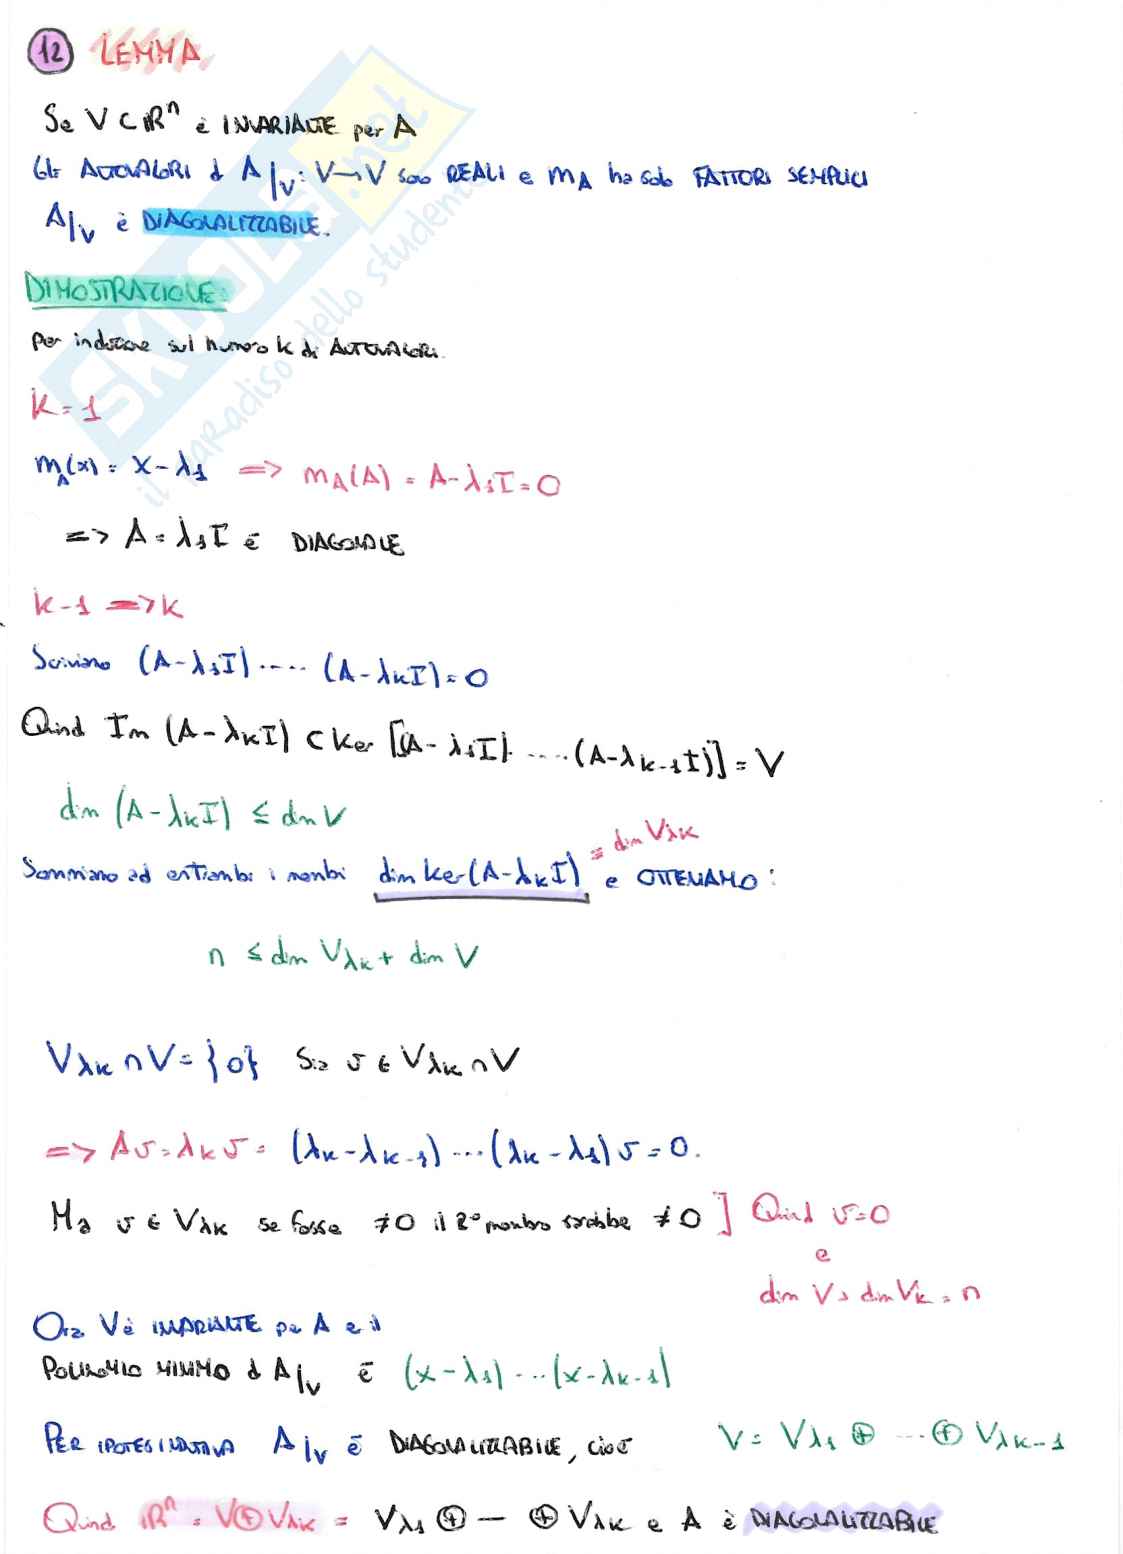 12 LEMMA
Se V ⊂ ℝⁿ è INVARIANTE per A
Gli AUTOVALORI di A|V : V→V sono REALI e mA ha solo FATTORI SEMPLICI
A|V è DIAGONALIZZABILE.
DIMOSTRAZIONE:
per induzione sul numero k di AUTOVALORI.
k = 1
mA(x) = x - λ1 => mA(A) = A - λ1I = 0
=> A = λ1I è DIAGONALE
k-1 => k
Scriviamo (A - λ1I) ..... (A - λkI) = 0
Quindi Im (A - λkI) ⊂ Ker [(A - λ1I) ..... (A - λk-1I)] = V
dim (A - λkI) ≤ dim V
Sommiamo ad entrambi i membri dim ker (A - λkI) = dim Vλk e OTTENIAMO:
n ≤ dim Vλk + dim V
Vλk ∩ V = {0} Sia v ∈ Vλk ∩ V
=> Av = λkv = (λk - λk-1) ... (λk - λ1) v = 0.
Ma v ∈ Vλk se fosse ≠ 0 il 2° membro sarebbe ≠ 0 ] Quindi v = 0
e
dim V + dim Vk = n
Ora V è INVARIANTE per A e il
POLINOMIO MINIMO di A|V è (x - λ1) ... (x - λk-1)
PER IPOTESI INDUTTIVA A|V è DIAGONALIZZABILE, cioè V = Vλ1 ⊕ ... ⊕ Vλk-1
Quindi ℝⁿ = V ⊕ Vλk = Vλ1 ⊕ — ⊕ Vλk e A è DIAGONALIZZABILE
SKUOLA.net
il paradiso dello studente